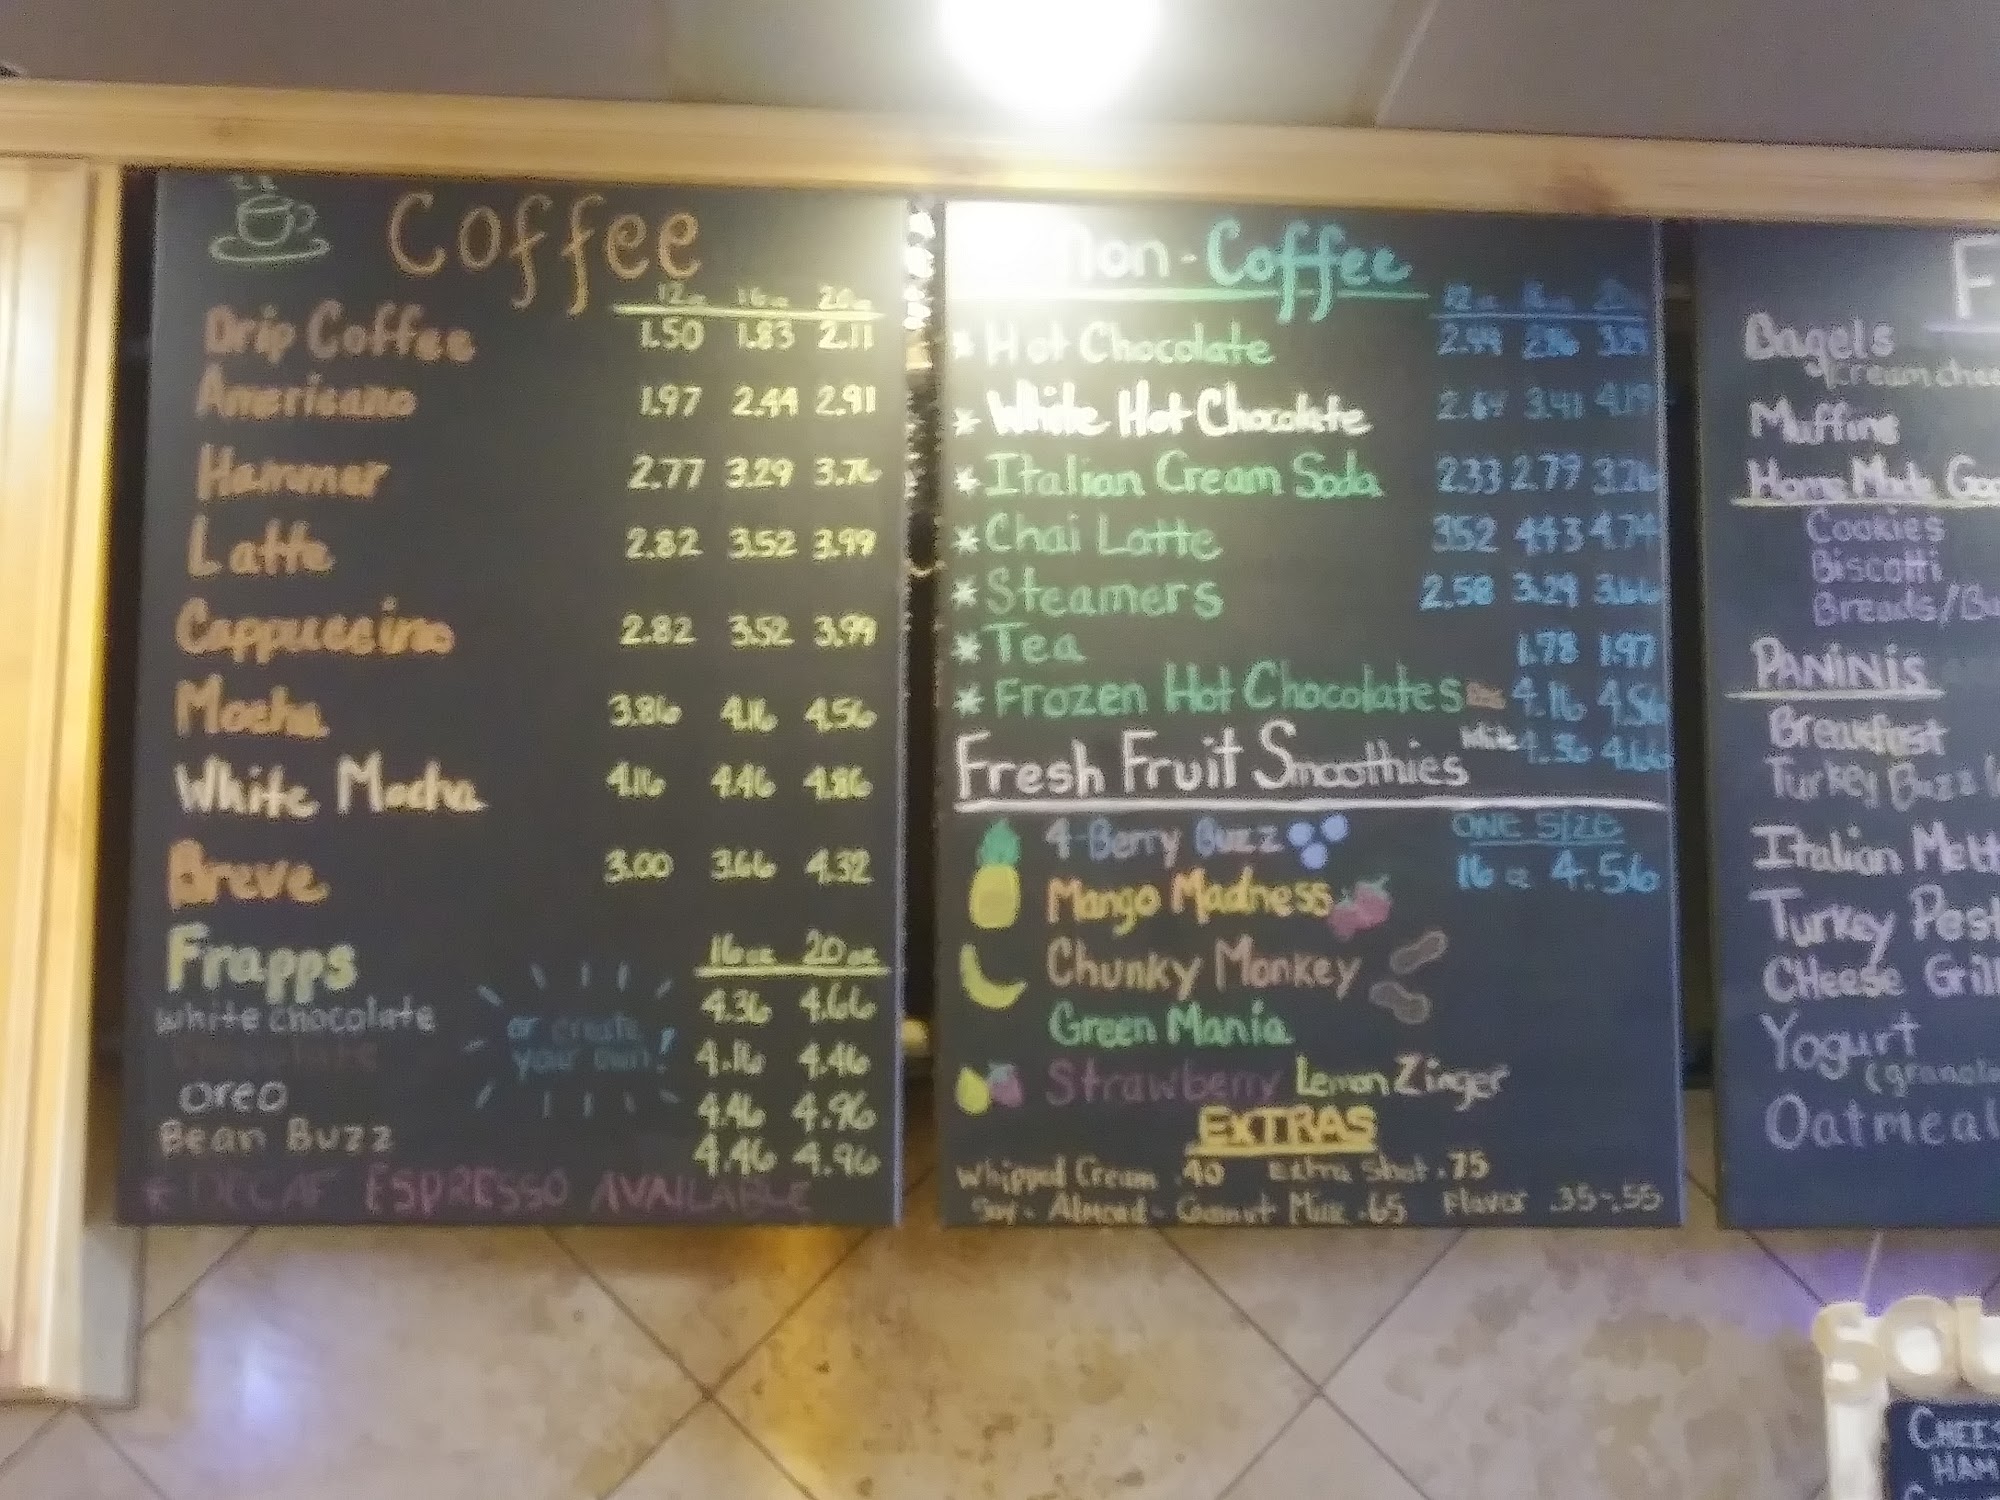 Coffee
12oz 16oz 20oz
Drip Coffee 1.50 1.83 2.11
Americano 1.97 2.44 2.91
Hammer 2.77 3.29 3.76
Latte 2.82 3.52 3.99
Cappuccino 2.82 3.52 3.99
Mocha 3.86 4.16 4.56
White Mocha 4.16 4.46 4.86
Breve 3.00 3.66 4.32
Frapps 16oz 20oz
White chocolate 4.36 4.66
4.16 4.46
Oreo 4.46 4.96
Bean Buzz 4.46 4.96
or create
your own!
* DECAF ESPRESSO AVAILABLE
Non-Coffee
* Hot Chocolate 2.44
* White Hot Chocolate 2.64 3.41 4.19
* Italian Cream Soda 2.33 2.79 3.26
* Chai Latte 3.52 4.43 4.74
* Steamers 2.58 3.29 3.66
* Tea 1.78 1.97
* Frozen Hot Chocolates 4.16 4.56
White 4.36 4.66
Fresh Fruit Smoothies
ONE SIZE
4-Berry Buzz
16 oz 4.56
Mango Madness
Chunky Monkey
Green Mania
Strawberry Lemon Zinger
EXTRAS
Whipped Cream .40 Extra Shot .75
Soy - Almond - Coconut Milk .65 Flavor .35-.55
F
Bagels
Muffins
Home Made
Cookies
Biscotti
Breads/
PANINIS
Breakfast
Turkey Buzz
Italian
Turkey
CHeese
Yogurt
Oatmeal
HAM